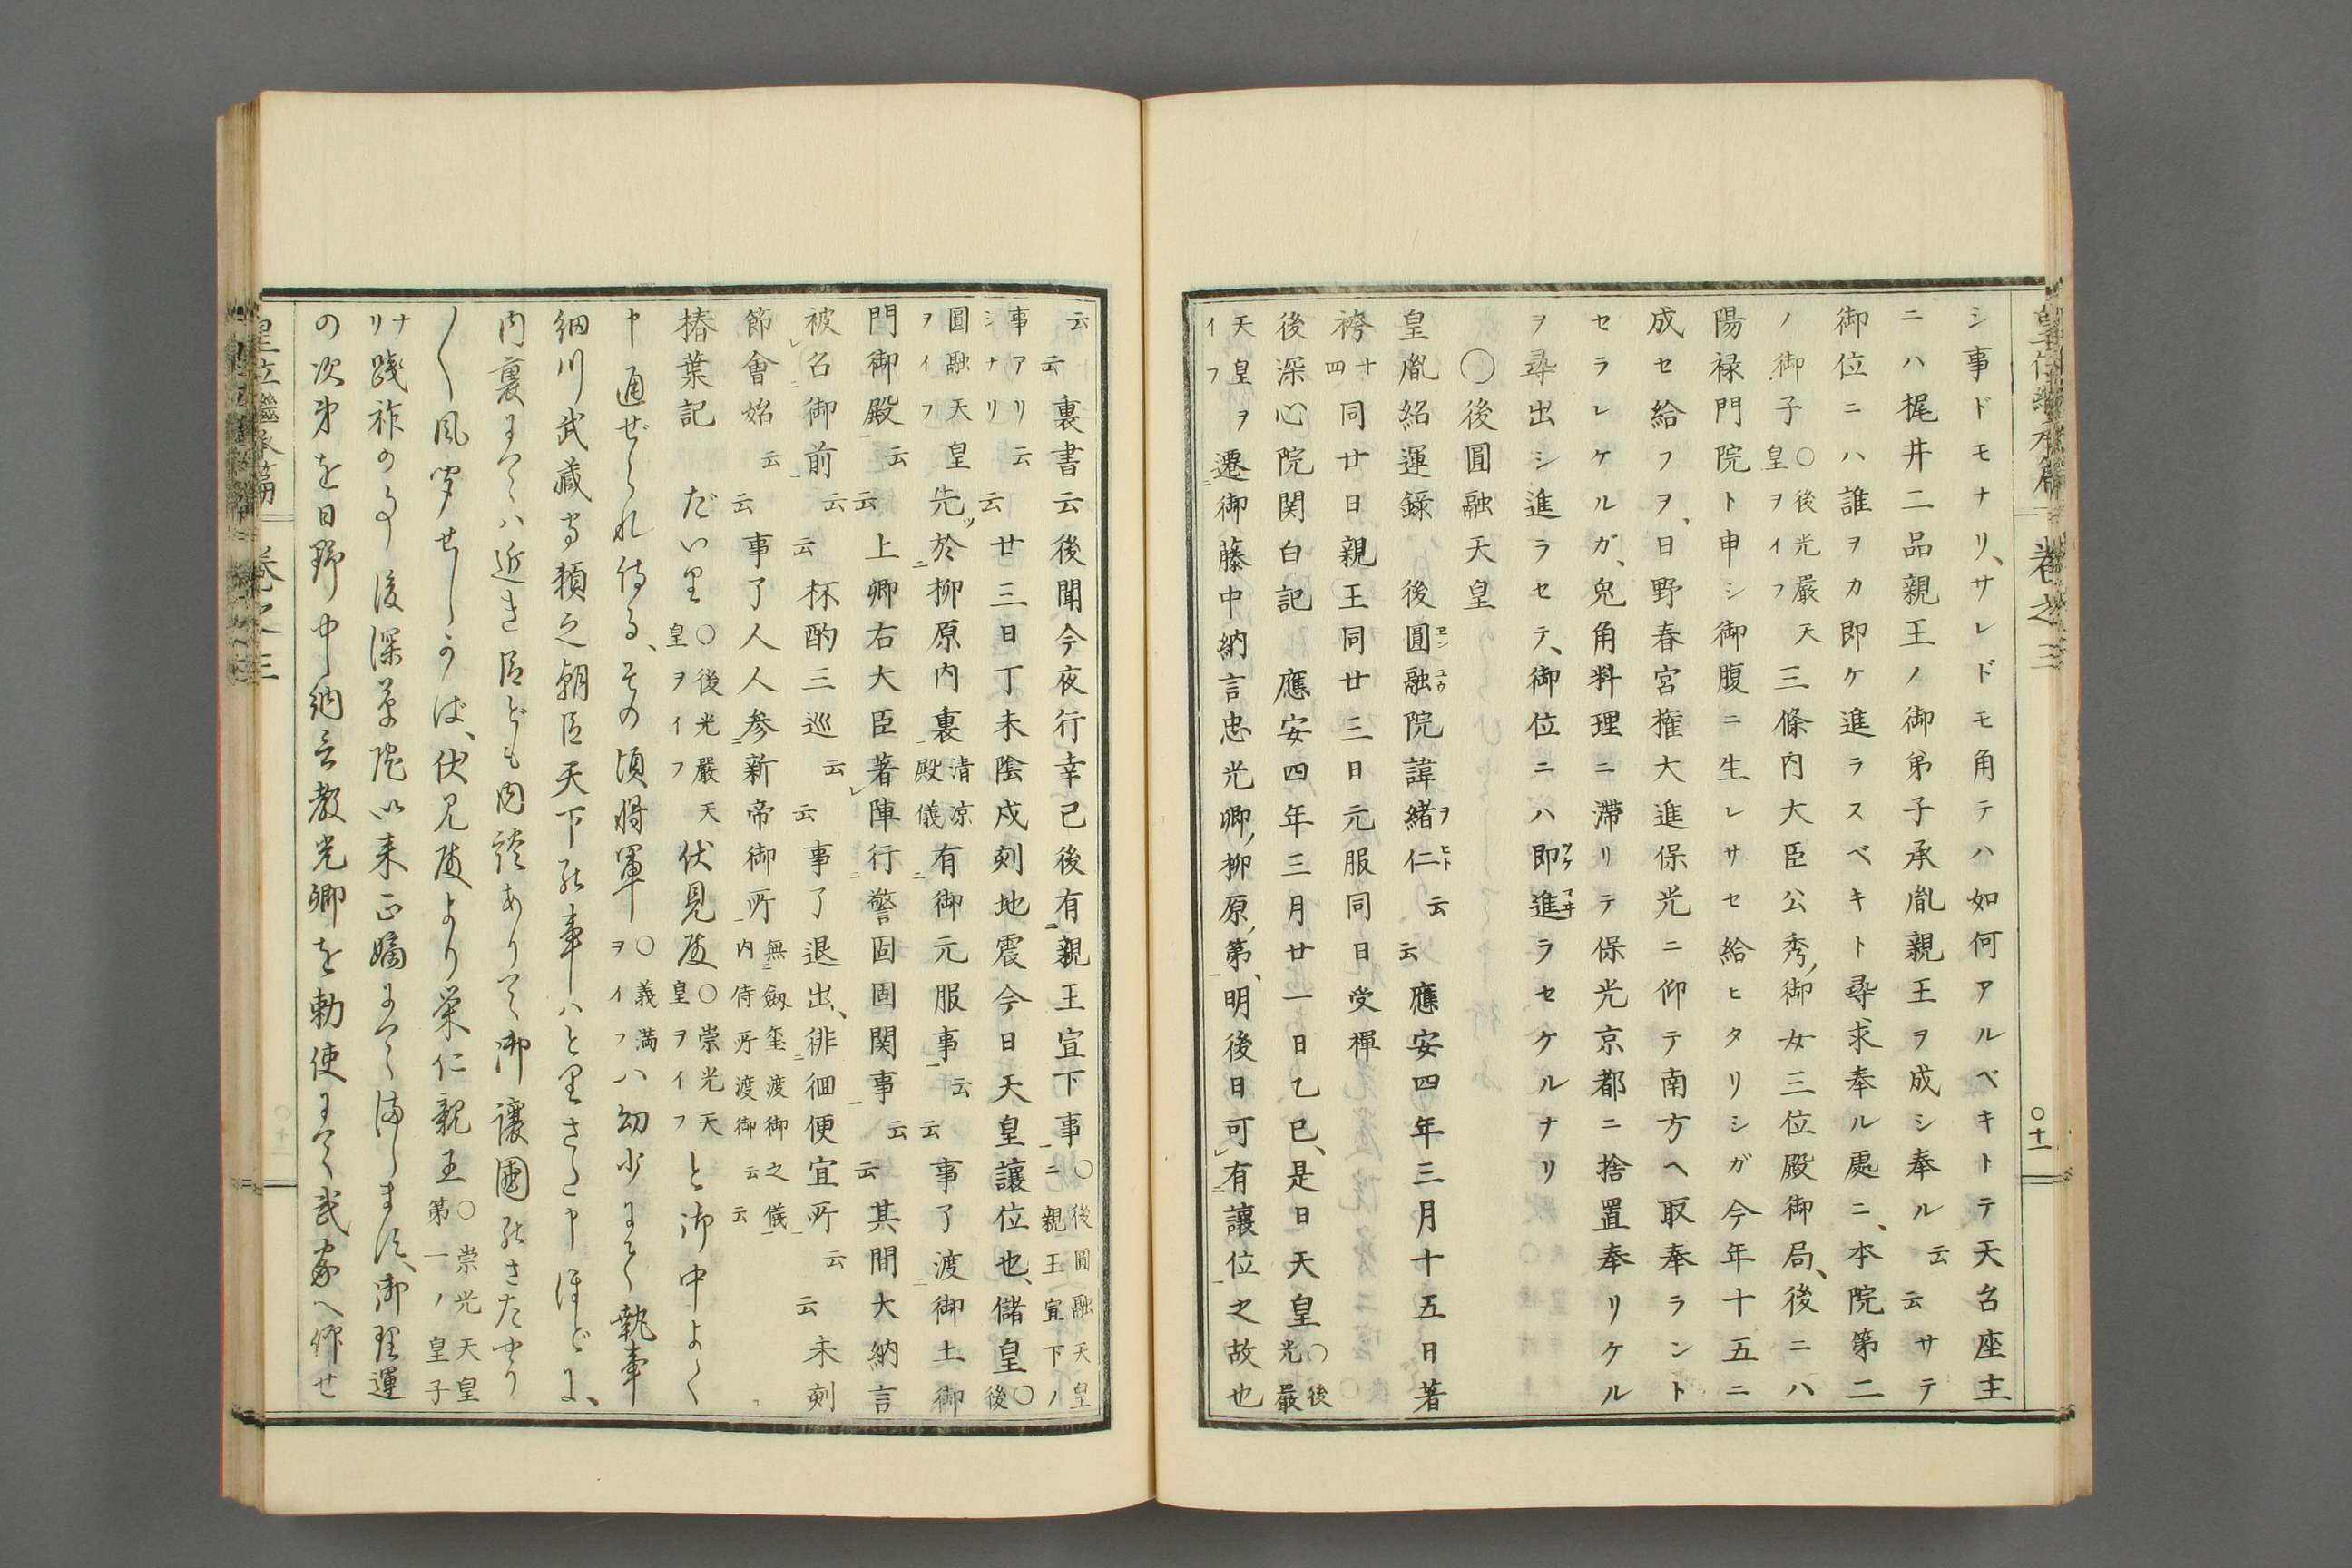 皇位繼承篇 卷之三 〇十一
シ事ドモナリ、サレドモ角テハ如何アルベキトテ天台座主
ニハ梶井二品親王ノ御弟子承胤親王ヲ成シ奉ル云云サテ
御位ニハ誰ヲカ即ケ進ラスベキト尋求奉ル處ニ、本院第二
ノ御子〇後光嚴天皇ヲイフ三條内大臣公秀ノ御女三位殿御局、後ニハ
陽禄門院ト申シ御腹ニ生レサセ給ヒタリシガ今年十五ニ
成セ給フヲ、日野春宮権大進保光ニ仰テ南方ヘ取奉ラント
セラレケルガ、兎角料理ニ滞リテ保光京都ニ捨置奉リケル
ヲ尋出シ進ラセテ、御位ニハ即進ラセケルナリ
〇後圓融天皇
皇胤紹運録 後圓融院諱緒仁云云應安四年三月十五日著
袴十四同廿日親王同廿三日元服同日受禅
後深心院関白記 應安四年三月廿一日乙巳、是日天皇〇後光嚴
天皇ヲイフ遷御藤中納言忠光卿、柳原第、明後日可有讓位之故也
云云裏書云後聞今夜行幸已後有親王宣下事〇後圓融天皇ニ親王宣下ノ
事アリシナリ云云廿三日丁未陰戍刻地震今日天皇讓位也、儲皇〇後
圓融天皇ヲイフ先於柳原内裏清凉殿儀有御元服事云云事了渡御土御
門御殿云云上卿右大臣著陣行警固固関事云云其間大納言
被召御前云云杯酌三巡云云事了退出、徘徊便宜所云云未刻
節會始云云事了人人参新帝御所無劔璽渡御之儀内侍所渡御云云
椿葉記 だい里〇後光嚴天皇ヲイフ伏見殿〇崇光天皇ヲイフと御中よく
申通ぜられ侍る、その頃将軍〇義満ヲイフハ幼少にて執事
細川武藏守頼之朝臣天下の事ハとりさた申ほどに、
内裏にてハ近き臣ども内談ありて御讓國のさたあり
〱風聞せしかば、伏見殿より榮仁親王〇崇光天皇第一ノ皇子
ナリ踐祚の事後深草院以来正嫡にてまします、御理運
の次第を日野中納言教光卿を勅使にて武家へ仰せ
皇位繼承篇 卷之三